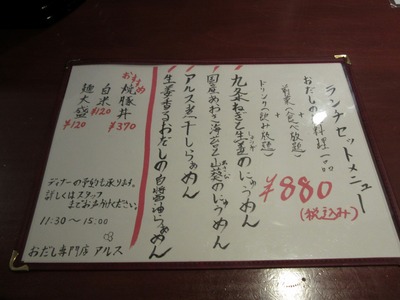 ランチセットメニュー
おだしのお料理一品
+
前菜(食べ放題)
+
ドリンク(飲み放題)
¥880
(税込み)
九条ねぎと生姜のにゅうめん
国産あおさ海苔と山葵のにゅうめん
アルス煮干しらぁめん
生姜香るおだしの白醤油らぁめん
お手頃
焼豚丼 ¥370
白米 ¥120
麺大盛 ¥120
ディナーの予約も承ります。
詳しくはスタッフ
までお声がけください。
11:30〜15:00
おだし専門店アルス